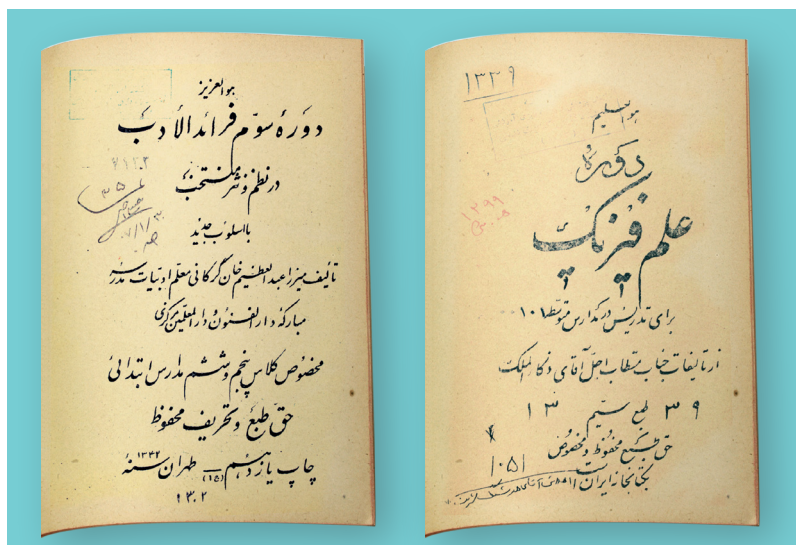 هوالعزیز
دورهٔ سوّم فرائد الأدب
در نظم و نثر منتخب
بااسلوب جدید
تألیف میرزا عبدالعظیم خان گرگانی معلّم ادبیّات مدرسهٔ
مبارکهٔ دارالفنون و دارالمعلّمین مرکزی
مخصوص کلاس پنجم و ششم مدارس ابتدائی
حقّ طبع و تحریف محفوظ
چاپ یازدهم (۱۵) طهران سنهٔ ۱۳۴۲
۱۳۰۲
۱۳۳۹
هوالعلیم
دورهٔ
علم فیزیک
برای تدریس در مدارس متوسّطه ۱۰۱
از تألیفات جناب مستطاب اجلّ آقای ذکاءالملک
۳۹ طبع سیّم ۱۳
حق طبع محفوظ و مخصوص
۱۰۵۱
بکتابخانه ایران است